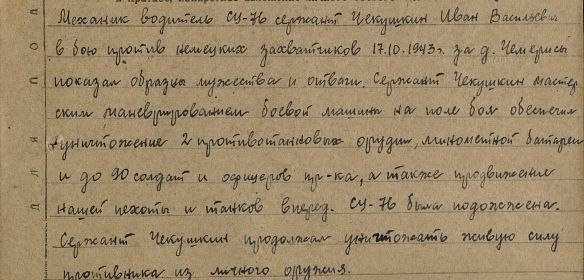 Механик водитель СУ-76 сержант Чекушкин Иван Васильевич
в бою против немецких захватчиков 17.10.1943г. за д. Чемерисы
показал образцы мужества и отваги. Сержант Чекушкин мастер-
ским маневрированием боевой машины на поле боя обеспечил
уничтожение 2 противотанковых орудий, минометной батареи
и до 90 солдат и офицеров пр-ка, а также продвижение
нашей пехоты и танков вперед. СУ-76 была подожжена.
Сержант Чекушкин продолжал уничтожать живую силу
противника из личного оружия.